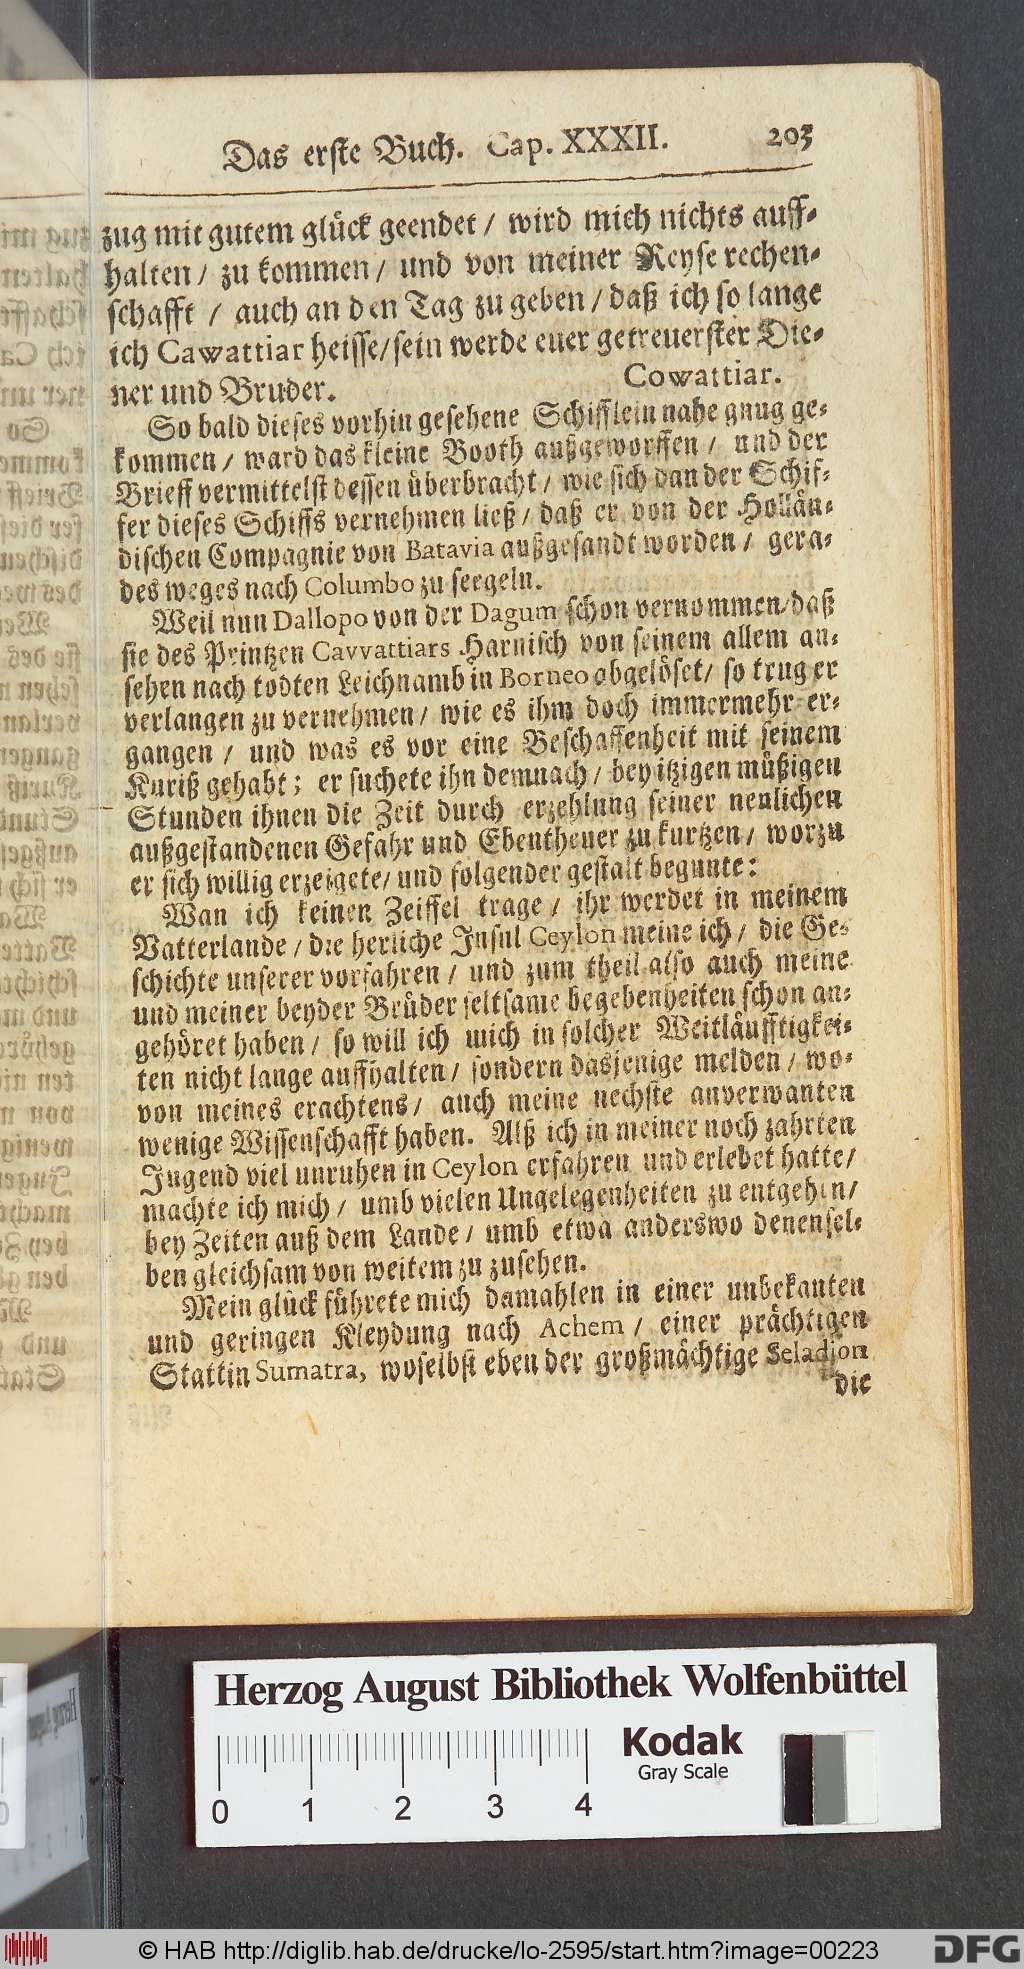 Das erste Buch. Cap. XXXII. 203
zug mit gutem glück geendet / wird mich nichts auff-
halten / zu kommen / und von meiner Reyse rechen-
schafft / auch an den Tag zu geben / daß ich so lange
ich Cawattiar heisse/sein werde euer getreuerster Die-
ner und Bruder. Cowattiar.
So bald dieses vorhin gesehene Schifflein nahe gnug ge-
kommen / ward das kleine Booth außgeworffen / und der
Brieff vermittelst dessen überbracht / wie sich dan der Schif-
fer dieses Schiffs vernehmen ließ / daß er von der Hollän-
dischen Compagnie von Batavia außgesandt worden / gera-
des weges nach Columbo zu seegeln.
Weil nun Dallopo von der Dagum schon vernommen/daß
sie des Printzen Cavvattiars Harnisch von seinem allem an-
sehen nach todten Leichnamb in Borneo abgelöset/ so trug er
verlangen zu vernehmen / wie es ihm doch immermehr er-
gangen / und was es vor eine Beschaffenheit mit seinem
Kuriß gehabt; er suchete ihn demnach / bey itzigen müßigen
Stunden ihnen die Zeit durch erzehlung seiner neulichen
außgestandenen Gefahr und Ebentheuer zu kurtzen / worzu
er sich willig erzeigete/ und folgender gestalt begunte:
Wan ich keinen Zeiffel trage / ihr werdet in meinem
Vatterlande / die herliche Insul Ceylon meine ich / die Ge-
schichte unserer vorfahren / und zum theil also auch meine
und meiner beyder Brüder seltsame begebenheiten schon an-
gehöret haben / so will ich mich in solcher Weitläufftigkei-
ten nicht lange auffhalten / sondern dasjenige melden / wo-
von meines erachtens / auch meine nechste anverwanten
wenige Wissenschafft haben. Alß ich in meiner noch zahrten
Jugend viel unruhen in Ceylon erfahren und erlebet hatte/
machte ich mich / umb vielen Ungelegenheiten zu entgehen/
bey Zeiten auß dem Lande / umb etwa anderswo denensel-
ben gleichsam von weitem zu zusehen.
Mein glück führete mich damahlen in einer unbekanten
und geringen Kleydung nach Achem / einer prächtigen
Statt in Sumatra, woselbst eben der großmächtige Seladjon
die
Herzog August Bibliothek Wolfenbüttel
Kodak
Gray Scale
0 1 2 3 4
© HAB http://diglib.hab.de/drucke/lo-2595/start.htm?image=00223
DFG